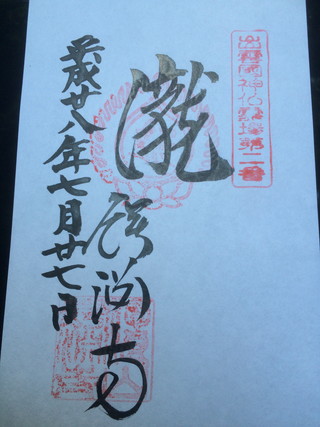 出雲國神仏霊場第二番
瀧
鰐渕寺
平成廿八年七月廿七日